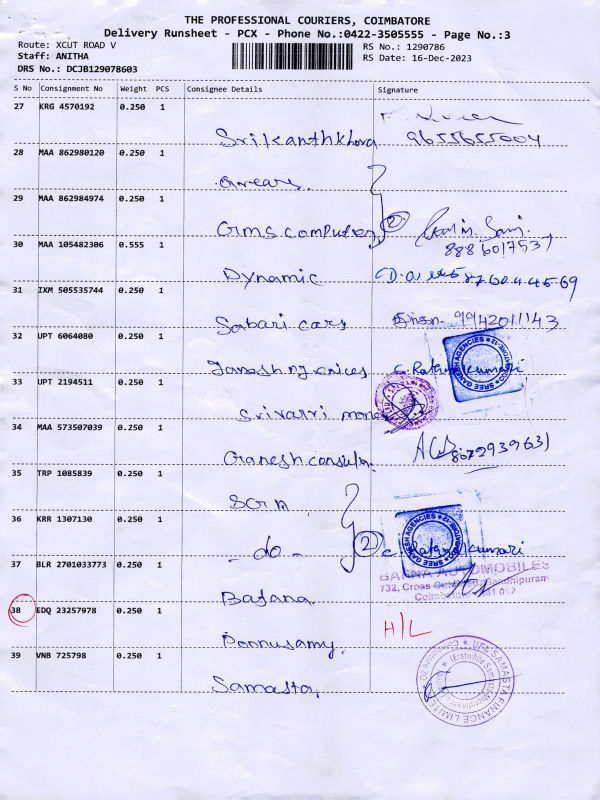 THE PROFESSIONAL COURIERS, COIMBATORE
Delivery Runsheet - PCX - Phone No.:0422-3505555 - Page No.:3
Route: XCUT ROAD V
RS No.: 1290786
Staff: ANITHA
RS Date: 16-Dec-2023
DRS No.: DCJB129078603
S No Consignment No Weight PCS Consignee Details Signature
27 KRG 4570192 0.250 1
Srikanthkhora 9655655004
28 MAA 862980120 0.250 1
29 MAA 862984974 0.250 1
Gms computer 2
8886017537
30 MAA 105482306 0.555 1
Dynamic
31 IXM 505535744 0.250 1
Sabari cars 9942011143
32 UPT 6064080 0.250 1
SREE GANESH AGENCIES
33 UPT 2194511 0.250 1
34 MAA 573507039 0.250 1
8072939631
35 TRP 1085839 0.250 1
36 KRR 1307130 0.250 1
- do - 2
SREE GANESH AGENCIES
37 BLR 2701033773 0.250 1
Bafana
BAFNA AUTOMOBILES
732, Cross Cut Road, Gandhipuram
Coimbatore - 641 012
38 EDQ 23257978 0.250 1
Ponnusamy. H/L
39 VNB 725798 0.250 1
Samasta,
IIFL SAMASTA FINANCE LIMITED